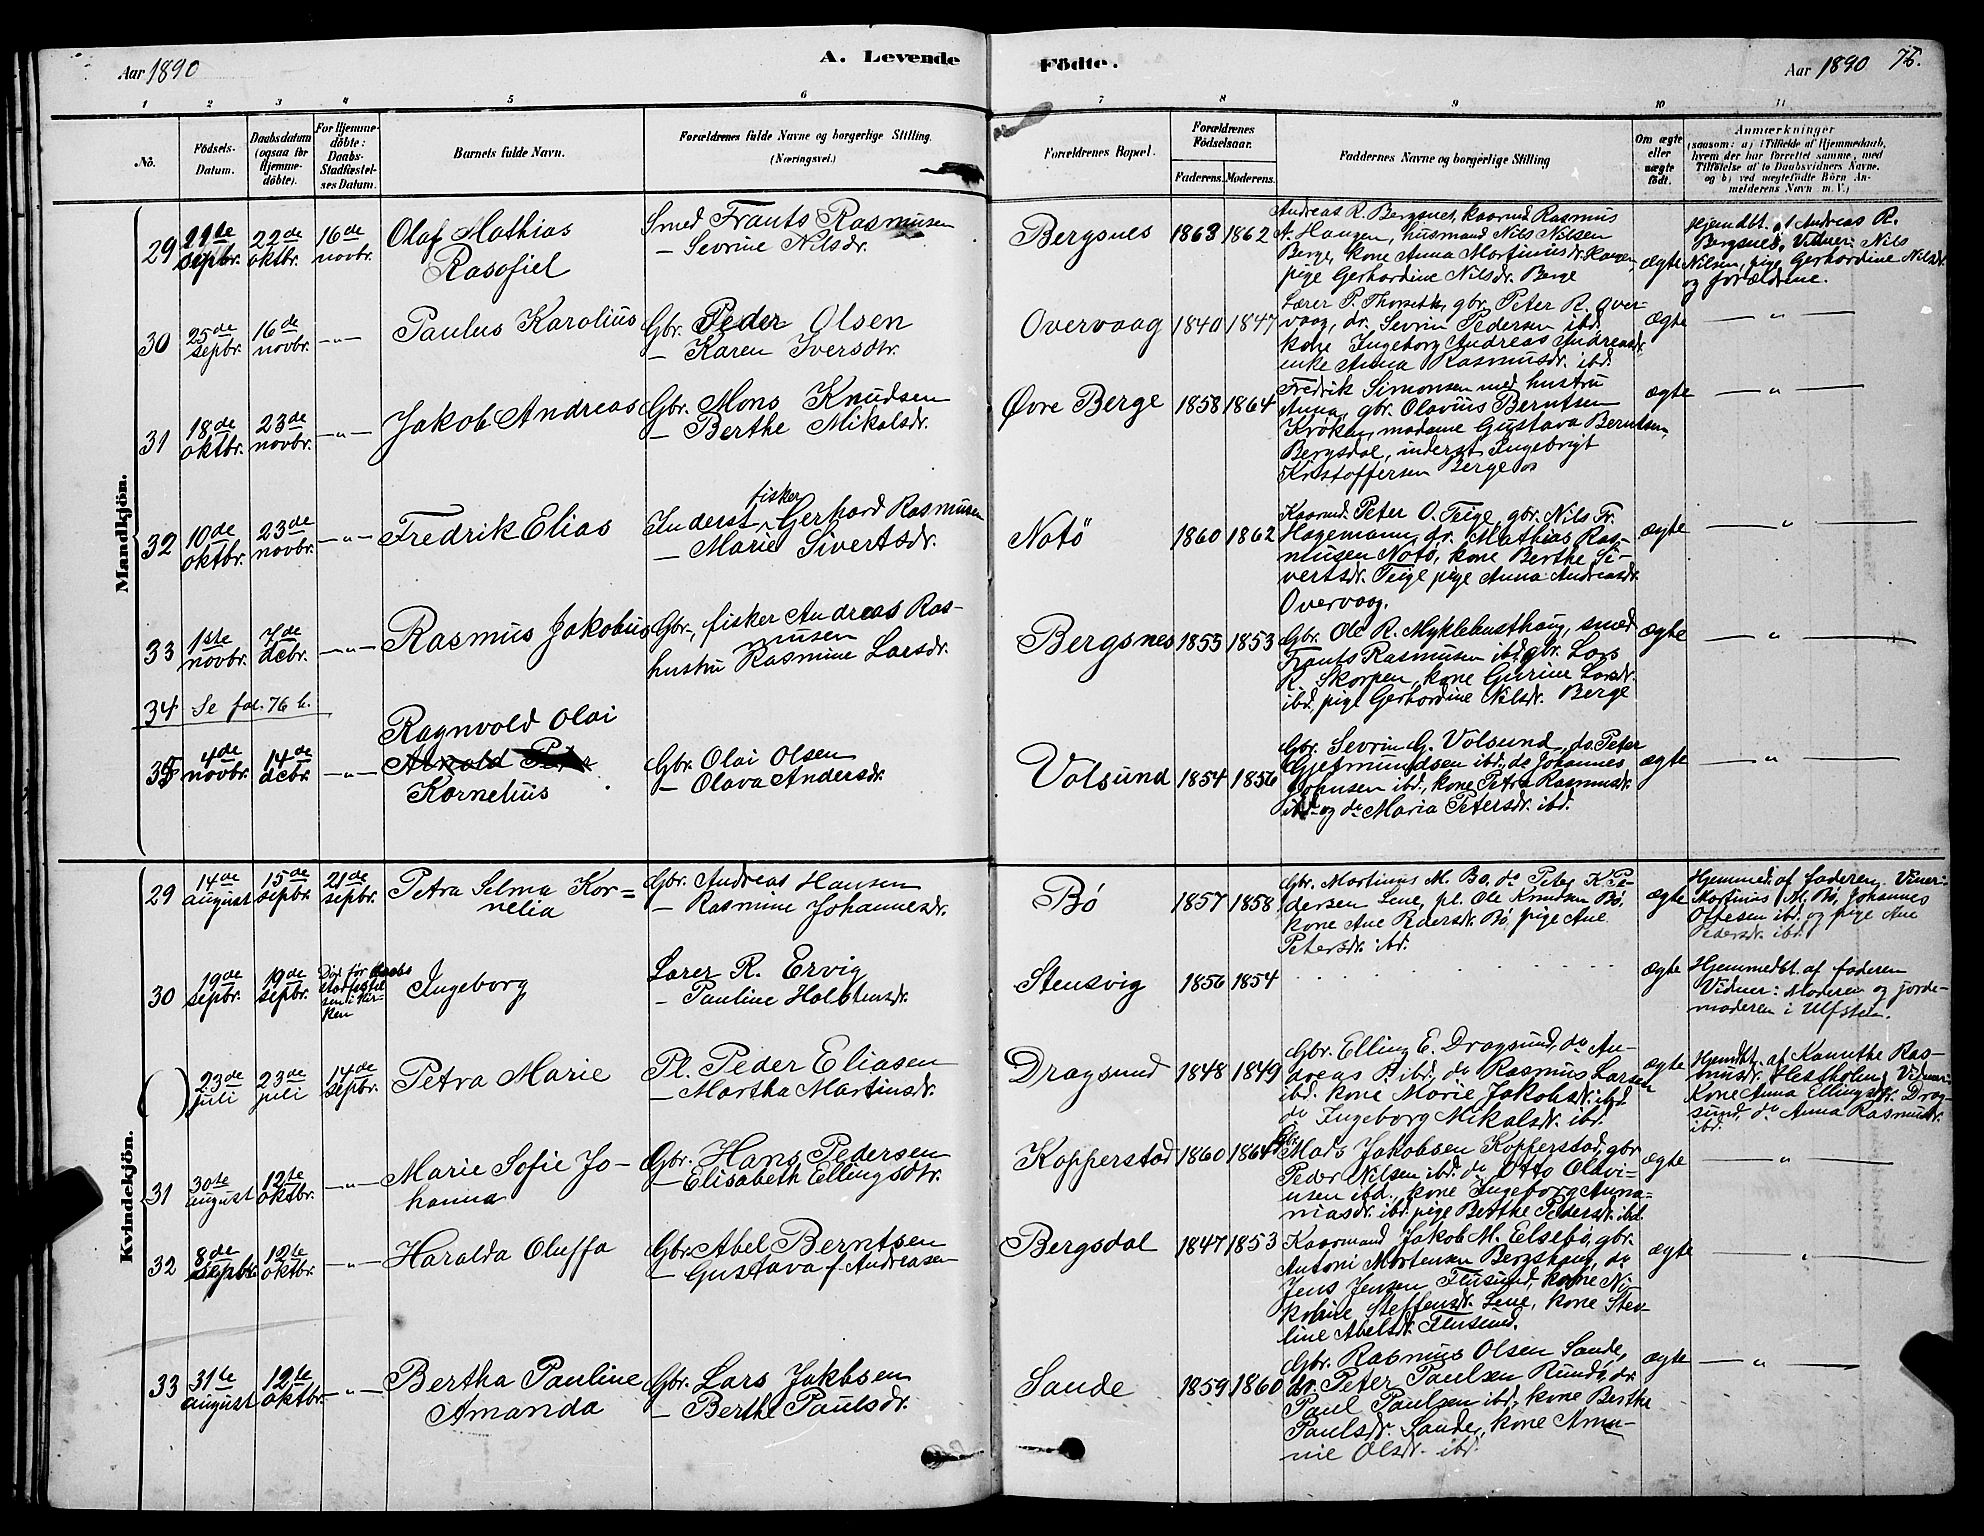 Aar 1890
A. Levende
Födte.
Aar 1890
75.
1 2 3 4 5 6 7 8 9 10 11
No.
Födsels-Datum.
Daabsdatum (ogsaa for Hjemme-döbte).
For Hjemme-döbte: Daabs-Stadfæstel-ses Datum.
Barnets fulde Navn.
Forældrenes fulde Navne og borgerlige Stilling.
(Næringsvei.)
Forældrenes Bopæl.
Forældrenes Födselsaar.
Faderens. Moderens.
Faddernes Navne og borgerlige Stilling
Om ægte eller uægte født.
Anmærkninger
(saasom: a) i Tilfælde af Hjemmedaab,
hvem der har forrettet samme, med
Tilföielse af to Daabsvidners Navne.
og b) ved uægtefödte Börn An-
melderens Navn m. V.)
Mandkjön.
29 21de septbr. 22de oktbr. 16de novbr.
Olaf Mathias
Rasofiel
Smed Frants Rasmusen
— Sevrine Nilsdr.
Bergsnes 1863 1862
Andreas R. Bergsnes, kaarmd Rasmus
A. Haugen, husmand Nils Nilsen
Berge, kone Anna Martinusdr. Haugen,
pige Gerhardine Nilsdr. Berge
ægte
Hjemdbt. af Andreas R.
Bergsnes, Vidner: Nils
Nilsen, pige Gerhardine Nilsdr.
og forældrene.
30 25de septbr. 16de novbr. —"—
Paulus Karolius
Gbr. Peder Olsen
— Karen Iversdtr.
Overvaag 1840 1847
Lærer P. Thorseth, gbr. Peter R. Over-
vaag, do. Sevrin Pedersen ibd.
kone Ingeborg Andreas Andreasdr.
enke Anna Rasmusdr. ibd.
ægte — " —
31 18de oktbr. 23de novbr. —"—
Jakob Andreas
Gbr. Mons Knudsen
— Berthe Mikalsdr.
Øvre Berge 1858 1864
Fredrik Simonsen med hustru
Anna, gbr. Olavius Berntsen
Krøken, madame Gustava Berntsen,
Bergsdal, inderst Ingebrigt
Kristoffersen Berge
ægte — " —
32 10de oktbr. 23de novbr. —"—
Fredrik Elias
fisker
Inderst Gerhard Rasmusen
— Marie Sivertsdr.
Notö 1860 1862
Kaarmd. Peter O. Teige, gbr. Nils Fr.
Hagemann, dr. Mathias Ras-
musen Notö, kone Berthe Si-
vertsdr. Teige pige Anna Andreasdr.
Overvaag.
ægte — " —
33 1ste novbr. 7de dcbr. —"—
Rasmus Jakobus
Gbr., fisker Andreas Ras-
musen
hustru Rasmine Larsdr.
Bergsnes 1855 1853
Gbr. Ole R. Myklebusthaug, smed
Frants Rasmusen ibd. gbr. Lars
R. Skorpen, kone Gurine Larsdr.
ibd., pige Gerhardine Nilsdr. Berge
ægte — " —
34 Se fol. 76 b.
35 4de novbr. 14de dcbr. —"—
Ragnvald Olai
Kornelius
Gbr. Olai Olsen
— Olava Andersdr.
Volsund 1854 1856
Gbr. Sevrin G. Volsund, do. Peter
Gjermundsen ibd., do Johannes
Johnsen ibd., kone Petra Rasmusdr.
ibd. og do Maria Petersdr. ibd.
ægte — " —
Kvindekjön.
29 14de august 15de septbr. 21de septbr.
Petra Selma Kor-
nelia
Gbr. Andreas Hansen
— Rasmine Johannesdr.
Bö 1857 1858
Gbr. Martinus M. Bö, do Peter K. Pe-
dersen Lene, pl. Ole Knudsen Bö,
kone Ane Pedersdr. Bö, pige Ane
Petersdr. ibd.
ægte
Hjemmed. af faderen. Viner:
Martinus M. Bö, Johannes
Ottesen ibd. og pige Ane
Pedersdr. ibd.
30 19de septbr. 19de septbr. Död før daabs stadfæstel sen i kir-ken
Ingeborg
Lærer R. Ervig
— Pauline Holstensdr.
Stensvig 1856 1854
ægte
Hjemmedbt. af faderen
Vidner: Moderen og jorde-
moderen i Ulfsten.
( ) 23de juli 23de juli 14de septbr.
Petra Marie
Pl. Peder Eliasen
— Martha Martinsdr.
Dragsund 1848 1849
Gbr. Elling E. Dragsund, do An-
dreas P. ibd., do Rasmus Larsen
ibd. kone Marie Jakobsdr. ibd.
do Ingeborg Mikalsdr. ibd.
ægte
Hjemdbt. af Kanuthe Ras-
musdr. Hestholm, Vidner:
Kone Anna Ellingsdr. Drag-
sund, do Anna Rasmusdr.
ibd.
31 30te august 12te oktbr. —"—
Marie Sofie Jo-
hanna
Gbr. Hans Pedersen
— Elisabeth Ellingsdtr.
Kopperstad 1860 1864
Gbr. Mads Jakobsen Kopperstad, gbr.
Peder Nilsen ibd. do Otto Olavi-
usen ibd., kone Ingeborg Anna-
niasdr. ibd. pige Berthe Pedersdr. ibd.
ægte — " —
32 8de septbr. 12te oktbr. —"—
Haralda Oluffa
Gbr. Abel Berntsen
— Gustava f. Andreasen
Bergsdal 1847 1853
Kaarmand Jakob M. Elsebö, gbr.
Antoni Mortensen Bergshaug, do
Jens Jensen Flusund, kone Ni-
koline Steffensdr. Lene, kone Ste-
line Abelsdr. Flusund.
ægte — " —
33 31te august 12te oktbr. —"—
Bertha Pauline
Amanda
Gbr. Lars Jakobsen
— Berthe Paulsdr.
Sande 1859 1860
Gbr. Rasmus Olsen Sande,
dr. Peter Paulsen Rundö, dr.
Paul Paulsen ibd., kone Berthe
Paulsdr. Sande, kone Ama-
nie Olsdr. ibd.
ægte — " —